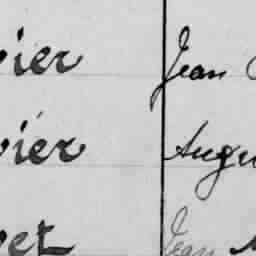 vier Jean
vier Augu
vet Jean